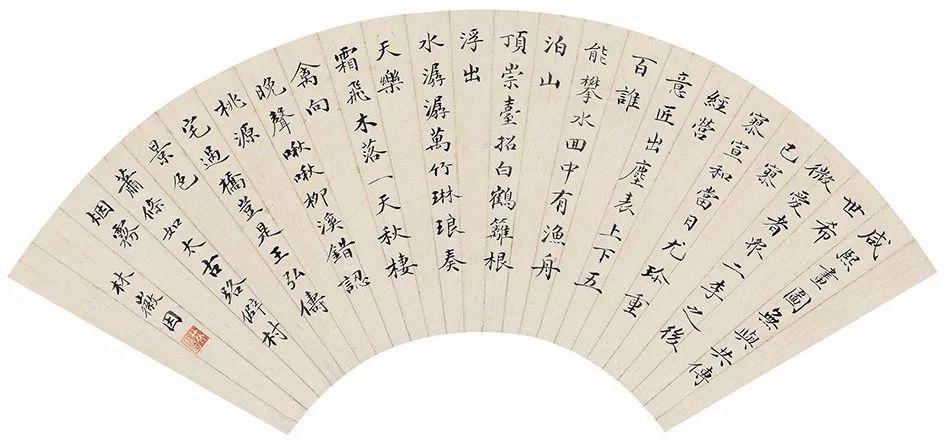 咸熙畫圖無與共傳
世希
微愛者衆二李之後
已寡
寡宣和當日尤珍重
經營
意匠出塵表上下五
百誰
能攀水回中有漁舟
泊山
頂崇臺招白鶴籬根
浮出
水潺潺萬竹琳琅奏
天樂
霜飛木落一天秋棲
禽向
晚聲啾啾柳溪錯認
桃源
宅過橋豈是王弘儔
景色
蕭條如太古路僻村
烟霧
林徽因